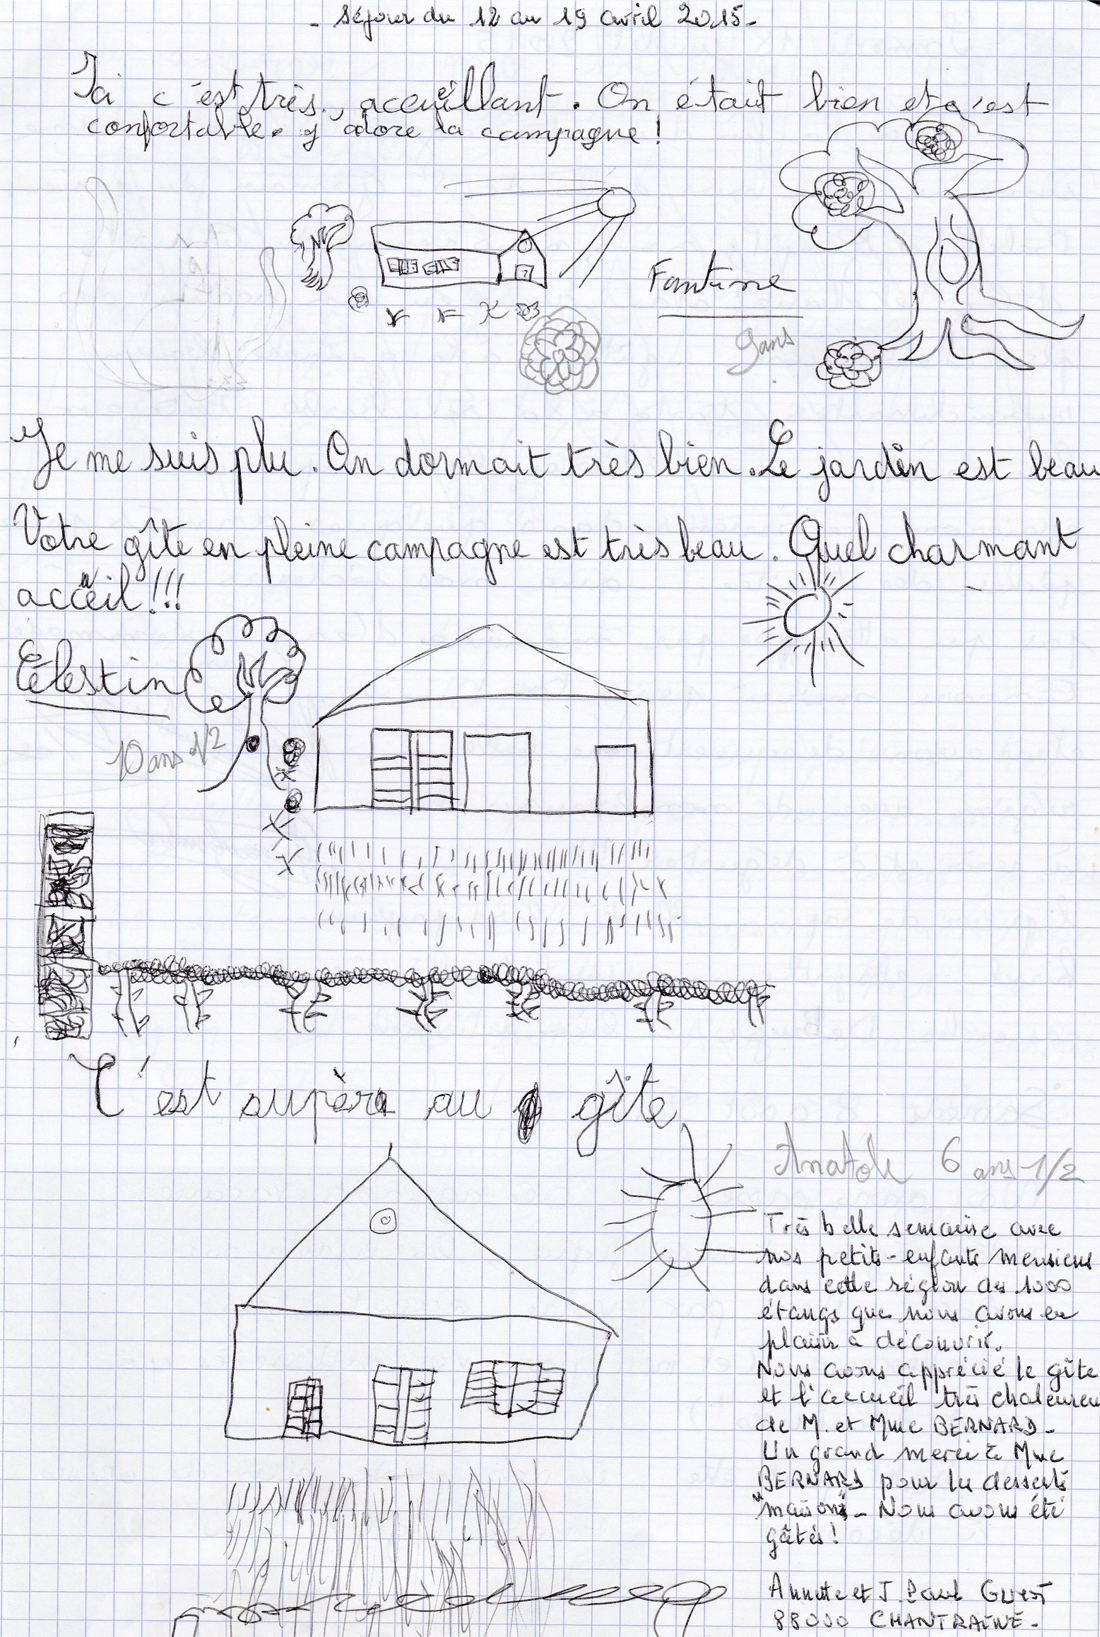 - Séjour du 12 au 19 avril 2015 -
Ici c'est très, acceuillant. On était bien et c'est
confortable. j'adore la campagne !
Fantine
9 ans
Je me suis plu. On dormait très bien. Le jardin est beau
Votre gîte en pleine campagne est très beau. Quel charmant
accueil !!!
Célestin
10 ans 1/2
C'est supèr au gîte
Anatole 6 ans 1/2
Très belle semaine avec
nos petits-enfants
dans cette région des 1000
étangs que nous avons eu
plaisir à découvrir.
Nous avons apprécié le gîte
et l'accueil très chaleureux
de M. et Mme BERNARD -
Un grand merci à Mme
BERNARD pour les desserts
"maisons" - Nous avons été
gâtés !
Annette et J. Paul
88000 CHANTRAINE -